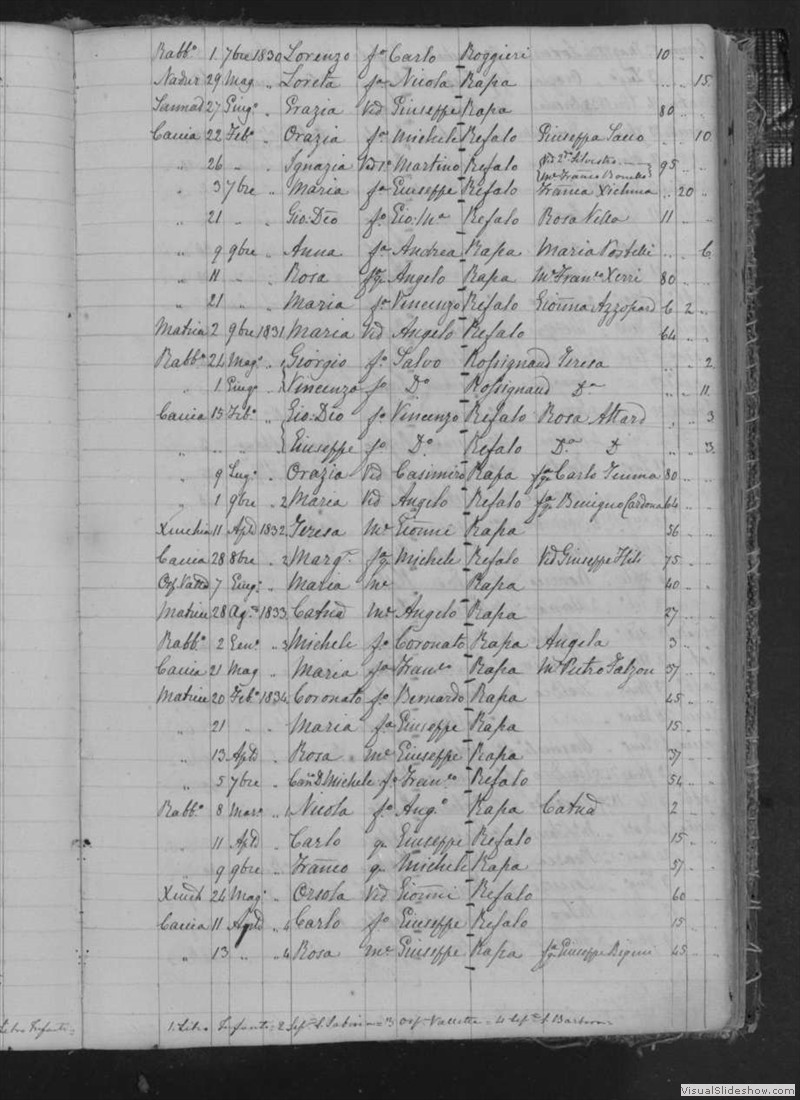 Rabb.o 1 7bre 1830 Lorenzo f.o Carlo Roggieri 10 " "
Nadur 29 Mag " Loreta f.a Nicola Rapa " " 15
Sannat 27 Giug.o " Grazia Vid Giuseppe Rapa 80 " "
Cacia 22 Feb.o " Orazia f.a Michele Refalo Giuseppa " " 10
" 26 " " Ignazia Vid 1.o Martino Refalo Vid 2.o Silvestro 95 " "
M.e Franco
" 3 7bre " Maria f.a Giuseppe Refalo Franca " 20 "
" 21 " " Gio: Dio f.o Gio: M.a Refalo Rosa Vella 11 " "
" 9 9bre " Anna f.a Andrea Rapa Maria " " 6
" 11 " " Rosa Angelo Rapa M.e Fran.co Xerri 80 " "
" 21 " " Maria f.a Vincenzo Refalo Gionna Azzopard 6 2 "
Matrice 2 9bre 1831 Maria Vid Angelo Refalo 64 " "
Rabb.o 24 Mag.o " 1 Giorgio f.o Salvo Rossignaud Teresa " " 2
" 1 Giug.o " Vincenzo f.o D.o Rossignaud D.a " " 11
Cacia 13 Feb.o " Gio: Dio f.o Vincenzo Refalo Rosa Attard " " 3
" " " " Giuseppe f.o D.o Refalo D.a D " " 3
" 9 Lug.o " Orazia Vid Casimiro Rapa Carlo 80 " "
" 1 9bre " 2 Maria Vid Angelo Refalo Benigno Cardona 64 " "
11 Aple 1832 Teresa M.e Gionni Rapa 56 " "
Cacia 28 8bre " 2 Marg.a Michele Refalo Vid Giuseppe 75 " "
7 Giug.o " Maria M.e Rapa 40 " "
Matrice 28 Ag.to 1833 Catna M.e Angelo Rapa 27 " "
Rabb.o 2 Gen.o " 3 Michele f.o Coronato Rapa Angela 3 " "
Cacia 21 Mag " Maria f.a Fran.co Rapa M.e Pietro Falzon 37 " "
Matrice 20 Feb.o 1834 Coronato f.o Bernardo Rapa 45 " "
" 21 " " Maria f.a Giuseppe Rapa 15 " "
" 13 Aple " Rosa M.e Giuseppe Rapa 37 " "
" 5 7bre " Can.o D. Michele f.o Fran.co Refalo 54 " "
Rabb.o 8 Mar.o " 1 Nicola f.o Aug.o Rapa Catna 2 " "
" 11 Aple " Carlo q. Giuseppe Refalo 15 " "
" 9 9bre " Franco q. Michele Rapa 57 " "
24 Mag.o " Orsola Vid Gionni Refalo 60 " "
Cacia 11 Aple " 4 Carlo f.o Giuseppe Refalo 15 " "
" 13 " " 4 Rosa M.e Giuseppe Rapa Giuseppe 45 " "
Libro Infanti =
1. Libro Infanti = 2 Sep.e S. Sabina = 3 Osp. Valletta = 4 Sep.e S. Barbara
VisualSlideshow.com